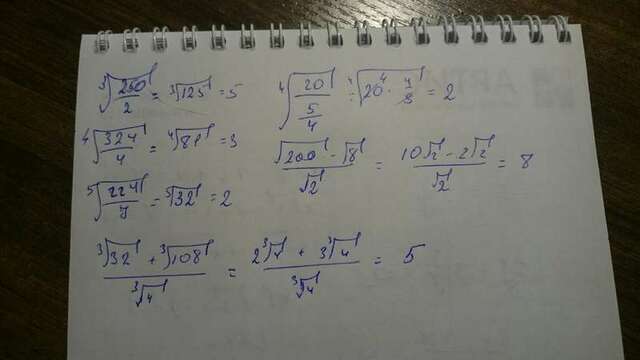 ∛(250/2) = ∛125 = 5
⁴√(20/(5/4)) = ⁴√(20 · 4/5) = 2
⁴√(324/4) = ⁴√81 = 3
(√200 - √8)/√2 = (10√2 - 2√2)/√2 = 8
⁵√(224/7) = ⁵√32 = 2
(∛32 + ∛108)/∛4 = (2∛4 + 3∛4)/∛4 = 5